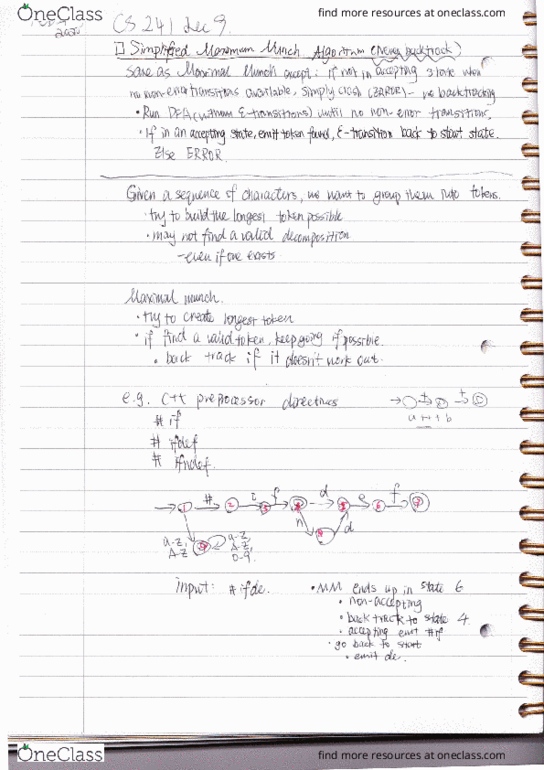 OneClass
find more resources at oneclass.com
2020
CS 241 Lec 9.
Simplified Maximum Munch Algorithm (Never backtrack)
same as Maximal Munch except: if not in accepting state when
no non-error transitions available, simply crash (ERROR) - no backtracking
• Run DFA (without ε-transitions) until no non-error transitions.
• If in an accepting state, emit token found, ε-transition back to start state.
Else ERROR.
Given a sequence of characters, we want to group them into tokens.
• try to build the longest token possible
• may not find a valid decomposition
- even if one exists
Maximal munch.
• try to create longest token
• if find a valid token, keep going if possible.
• back track if it doesn't work out.
e.g. C++ preprocessor directives
+ +
a++b
# if
# ifdef
# ifndef
# i f d e f
1 2 3 4 5 6 7
n d
a-z,
A-Z
a-z,
A-Z,
0-9
input: #ifde.
• MM ends up in state 6
• non-accepting
• back track to state 4
• accepting emit #if
• go back to start
• emit de.
OneClass
find more resources at oneclass.com